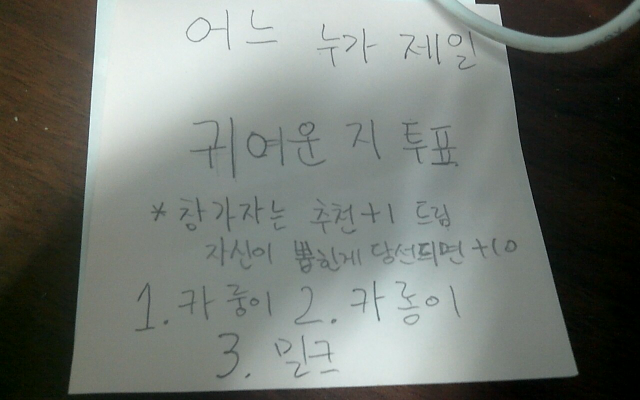 어느 누가 제일
귀여운 지 투표
* 참가자는 추천+1 드림
자신이 뽑힌게 당선되면 +10
1. 카룽이 2. 카롱이
3. 밀크